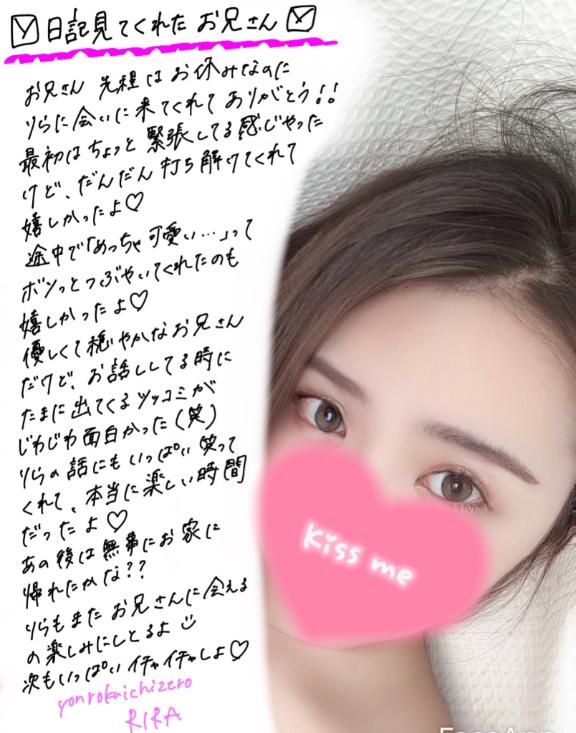 日記見てくれた お兄さん
お兄さん 先程は お休みなのに
りらに会いに来てくれて ありがとう!!
最初はちょっと 緊張してる感じやった
けど、だんだん 打ち解けてくれて
嬉しかったよ♡
途中で「めっちゃ可愛い…」って
ボソっとつぶやいてくれたのも
嬉しかったよ♡
優しくて穏やかなお兄さん
だけど、お話ししてる時に
たまに出てくるツッコミが
じわじわ面白かった(笑)
りらの話にもいっぱい笑って
くれて、本当に楽しい時間
だったよ♡
あの後は無事にお家に
帰れたかな??
りらもまた お兄さんに会える
の楽しみにしとるよ
次もいっぱいイチャイチャしよ♡
yonrokuichizero
RIRA
Kiss me